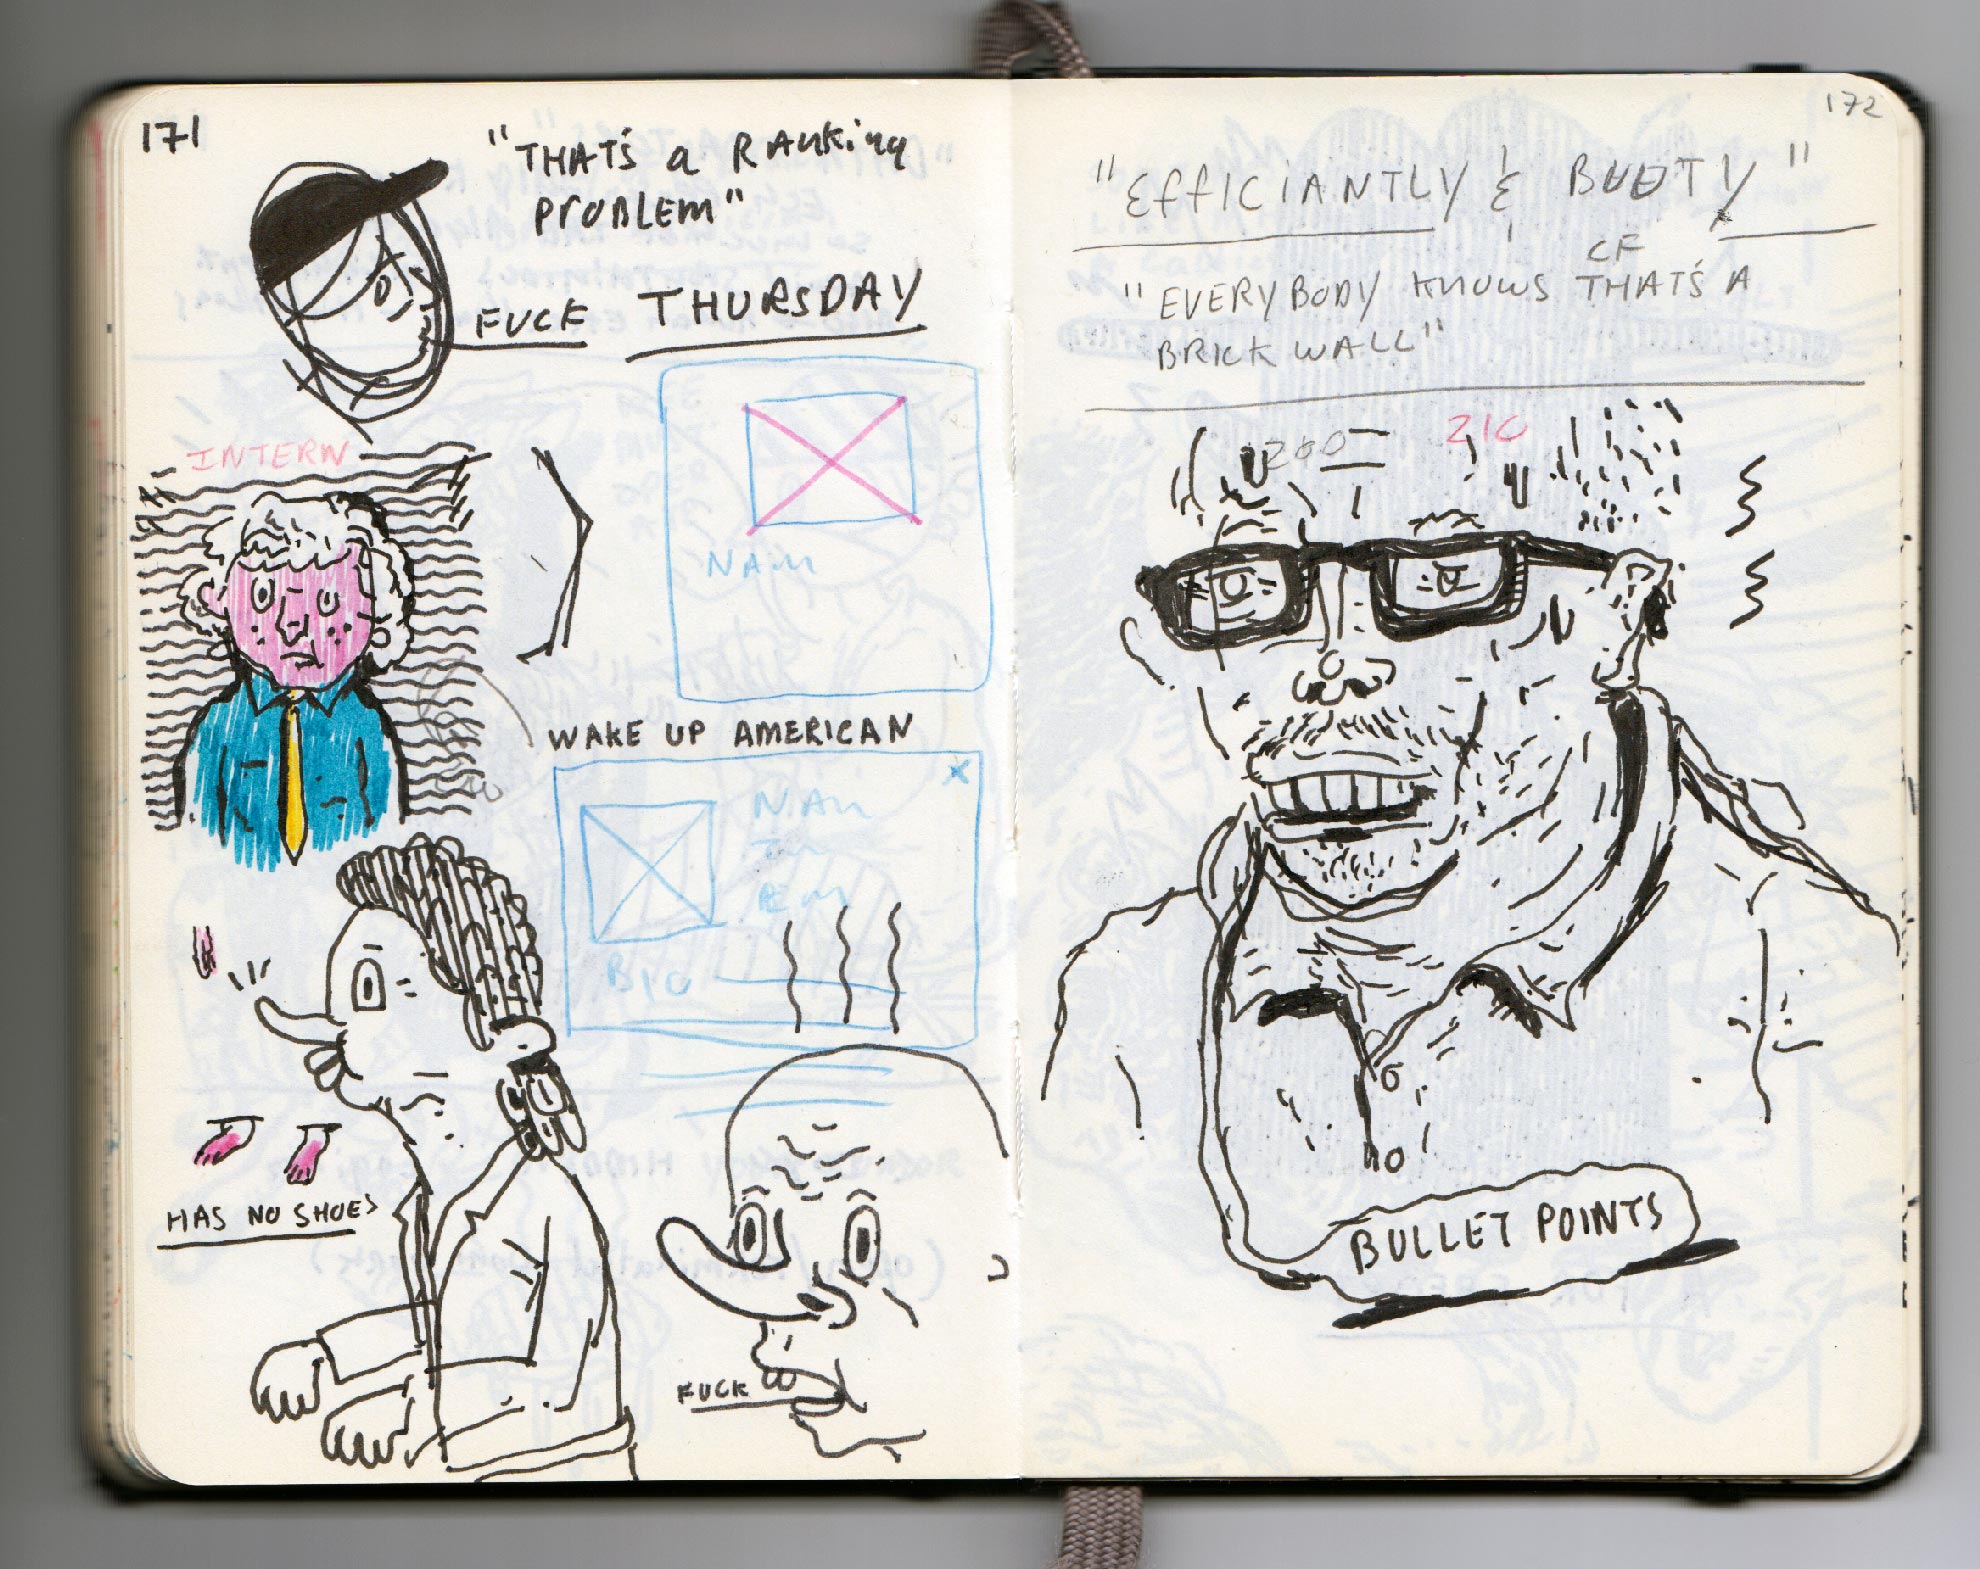 171
"THAT'S a RANKING
PROBLEM"
FUCK THURSDAY
INTERN
NAM
WAKE UP AMERICAN
X
NAM
EM
BIO
HAS NO SHOES
FUCK
172
"EFFICIANTLY &
CF
"EVERYBODY KNOWS THAT'S A
BRICK WALL"
200
210
BULLET POINTS